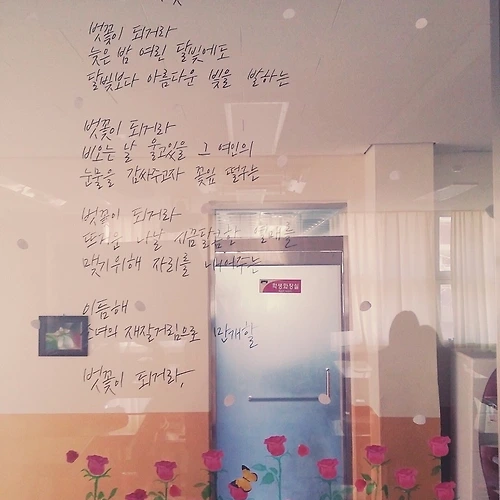 벚꽃이 되거라
늦은 밤 여린 달빛에도
달빛보다 아름다운 빛을 발하는
벚꽃이 되거라
비오는 날 울고있을 그 여인의
눈물을 감싸주고자 꽃잎 떨구는
벚꽃이 되거라
뜨거운 나날 시끔달콤한 열매를
맺기위해 자리를 내어주는
이듬해
소녀의 재잘거림으로 만개할
벚꽃이 되거라,
학생화장실